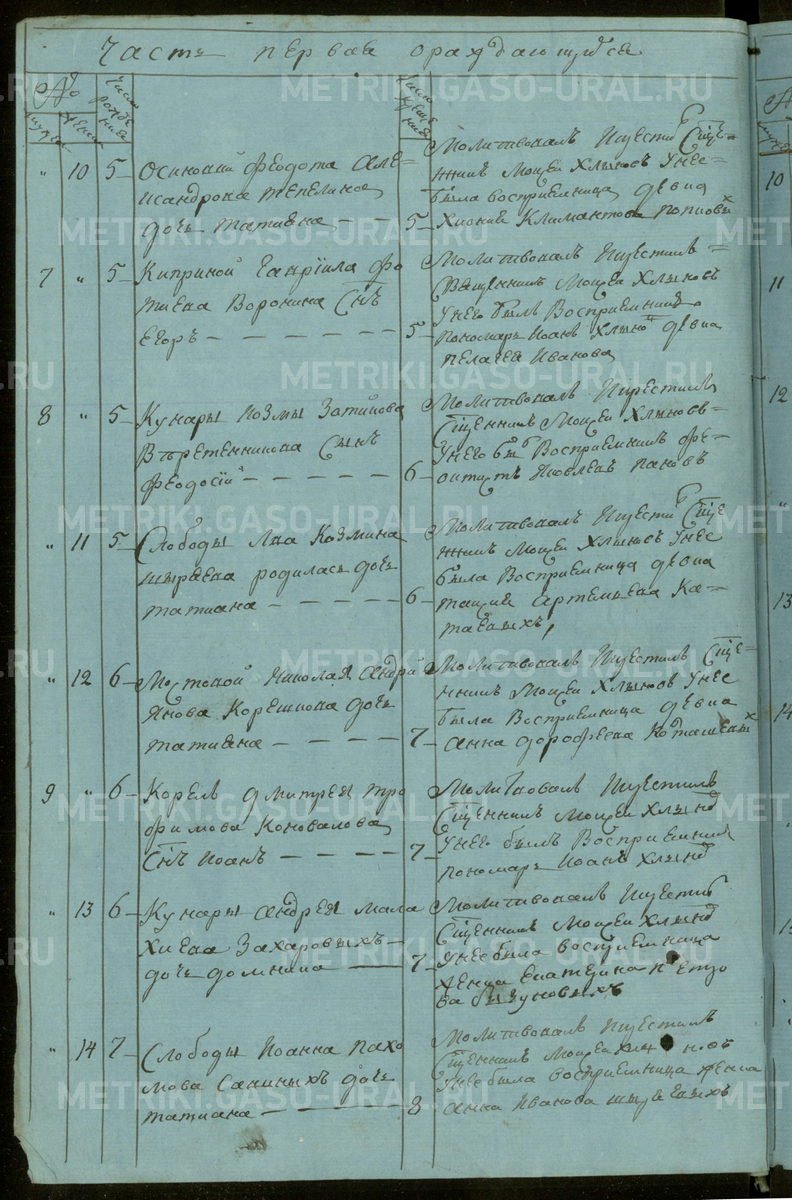 Часть первая ораждающихся
№
мужеска
женска
Число рождения
Число крещения
" 10 5 Осиновки Ѳеодота Але-
ксандрова Тепелина
дочь Татияна 5
Молитвовалъ икрести Сще-
нникъ Моисей Хлыновъ унее
была восприемница девка
Хиония Климантова поповыхъ
7 " 5 Киприной Гаврiила Фо
тиева Воронина Снъ
Егоръ 5
Молитвовалъ икрестилъ
Священникъ Моисей Хлыновъ
унего былъ Восприемникъ
пономарь Иоанъ Хлыновъ девка
Пелагея Иванова
8 " 5 Кунары Козмы
Веретенникова Сынъ
Феодосiй 6
Молитвовалъ икрестилъ
Сщенникъ Моисей Хлыновъ
унего бы Восприемникъ Фе-
октистъ Яковлевъ Пановъ
" 11 5 Слободы Лва Козмина
Шыряева родилась дочь
Татиана 6
Молитвовалъ икрести Сще
нникъ Моисей Хлыновъ унее
была Восприемница девка
Артемьева Ка-
таевыхъ,
" 12 6 Мостовой Николая Андрi
янова Корешкова дочь
Татияна 7
Молитвовалъ икрестилъ Сще-
нникъ Моисей Хлыновъ унее
была Восприемница девка
Анна Дорофеева
9 " 6 Корелъ Дмитрея Тро
фимова Коновалова
Снъ Иоанъ 7
Молитвовалъ икрестилъ
Сщенникъ Моисей Хлынов
унего былъ Восприемник
пономарь Иоанъ Хлынов
" 13 6 Кунары Андрея Мала
хиева Захаровыхъ
дочь Домника 7
Молитвовалъ икрестил
Сщенникъ Моисей Хлынов
унее была восприемница
женка Екатерина Петро
ва
" 14 7 Слободы Иоанна Пахо
мова Саниныхъ дочь
Татиана 8
Молитвовалъ икрестилъ
Сщенникъ Моисей Хлыновъ
унее была восприемница женка
Анна Иванова Шыряевыхъ
10
11
12
"
13
14
METRIKI.GASO-URAL.RU